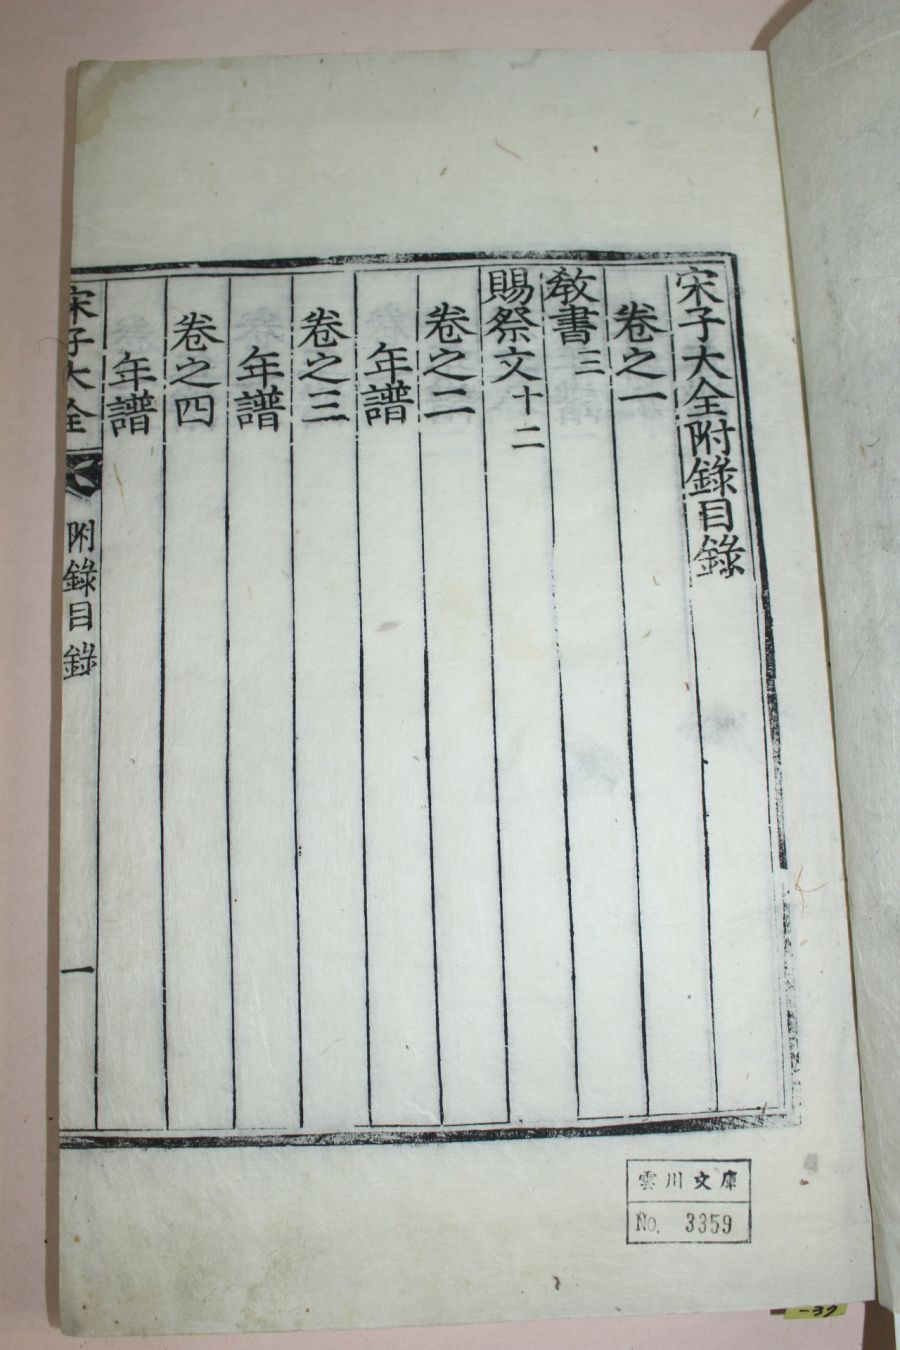 宋子大全附錄目錄
卷之一
敎書三
賜祭文十二
卷之二
年譜
卷之三
年譜
卷之四
年譜
宋子大全
附錄目錄
一
雲川文庫
No. 3359
-39